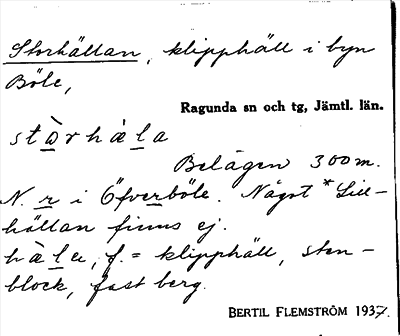 Storhällan, klipphäll i byn
Böle,
Ragunda sn och tg, Jämtl. län.
stàrhàla
Belägen 300 m.
N. r i Öfverböle. Något *Lill-
hällan finns ej.
hàla, f. = klipphäll, sten-
block, fast berg.
BERTIL FLEMSTRÖM 1937.